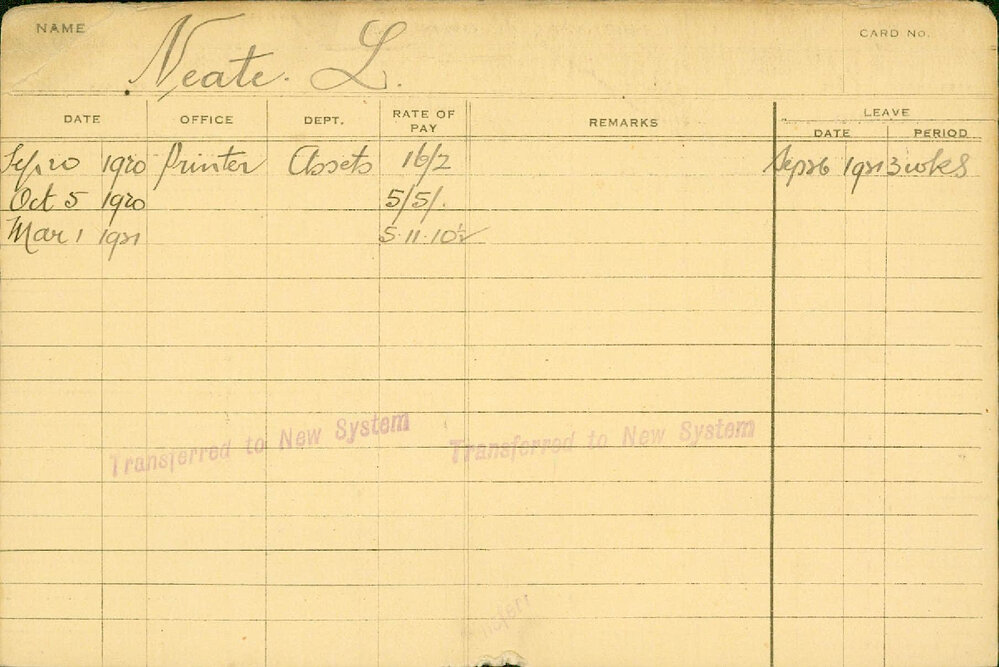 NAME Neate. L. CARD No.
DATE OFFICE DEPT. RATE OF PAY REMARKS LEAVE
DATE PERIOD
Sep 20 1920 Printer Assets 16/2 Sep 26 1921 3 wks
Oct 5 1920 5/5/.
Mar 1 1921 5.11.10½
Transferred to New System Transferred to New System